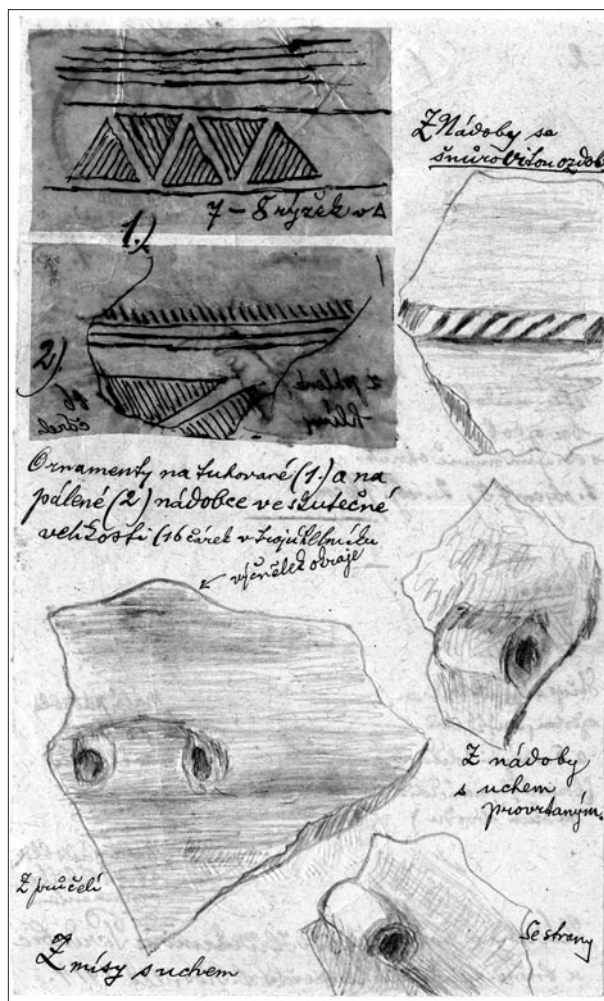 7 – 8 rýžek v Δ
1.)
2.)
16
čárek
Z Nádoby se
šnůrovitou ozdob
Ornamenty na tuhované (1.) a na
pálené (2) nádobce ve skutečné
velikosti (16 čárek v trojuhelníku
výčnělek okraje
Z nádoby
s uchem
provrtaným.
Z průčelí
Z mísy s uchem
Se strany